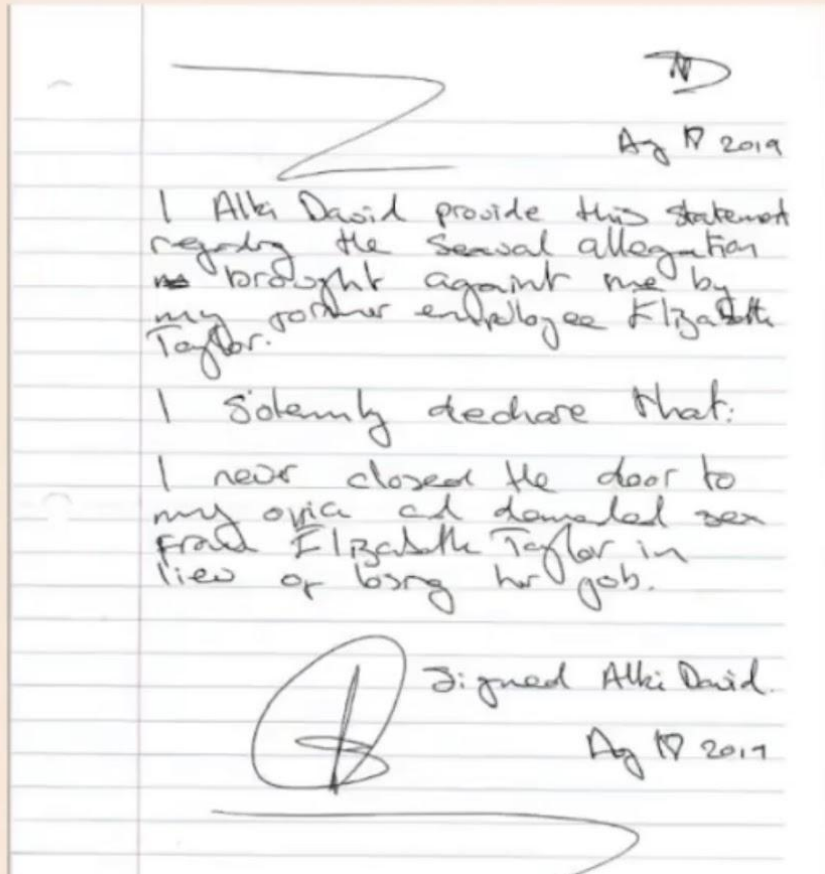 Aug 19 2019
I Alki David provide this statement
regarding the sexual allegation
brought against me by
my former employee Elizabeth
Taylor.
I solemnly declare that:
I never closed the door to
my office and demanded sex
from Elizabeth Taylor in
lieu of losing her job.
Signed Alki David.
Aug 19 2019